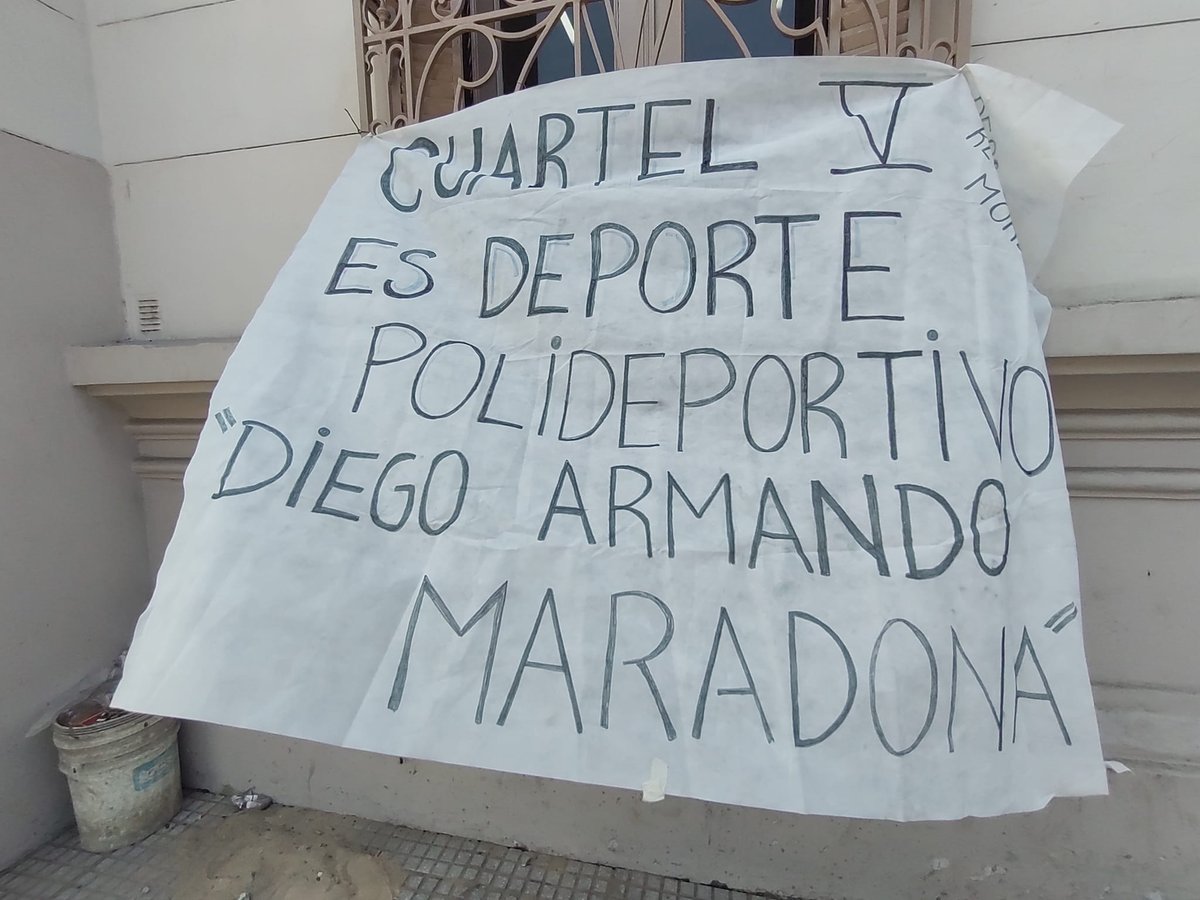 CUARTEL V
ES DEPORTE
POLIDEPORTIVO
"DIEGO ARMANDO
MARADONA"